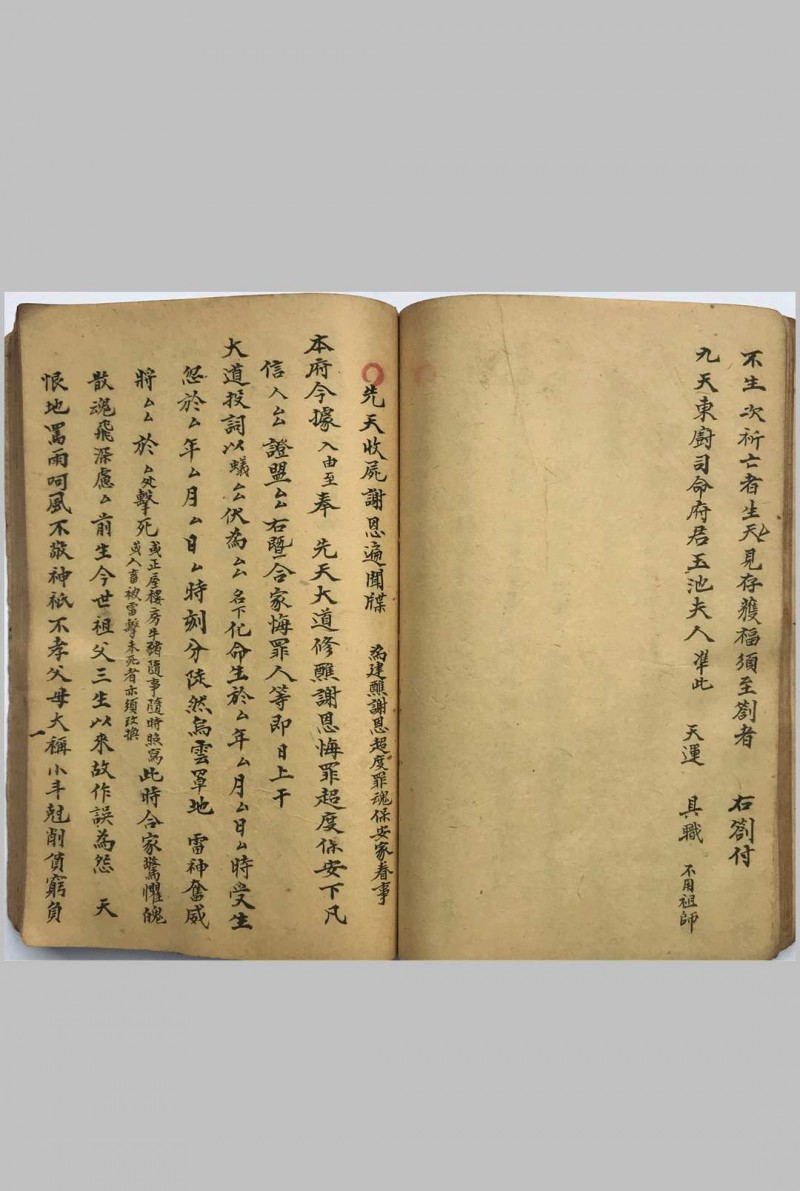 不生次祈亡者生天見存獲福須至劄者　右劄付
九天東廚司命府君玉池夫人准此　天運　具職　不用祖師
先天收屍謝恩遍聞牒　為建醮謝恩超度罪魂保安家眷事
本府今據入由至奉　先天大道修醮謝恩悔罪超度保安下凡
信人厶厶證盟厶厶右暨合家悔罪人等即日上干
大道投詞以蟻厶厶伏為厶厶名下化命生於厶年厶月厶日厶時受生
忽於厶年厶月厶日厶時刻分陡然烏雲罩地　雷神奮威
將厶厶於厶处擊死或正座樓房牛豬隨事隨時照寫
或人畜被雷擊未死者亦須改撰
此時合家驚懼魄
散魂飛深慮厶前生今世祖父三生以來故作誤為怨　天
恨地罵雨呵風不敬神祇不孝父母大秤小斗尅削債窮負